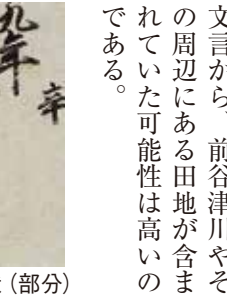 文言から、前谷津川やそ
の周辺にある田地が含ま
れていた可能性は高いの
である。
九年
辛
(部分)